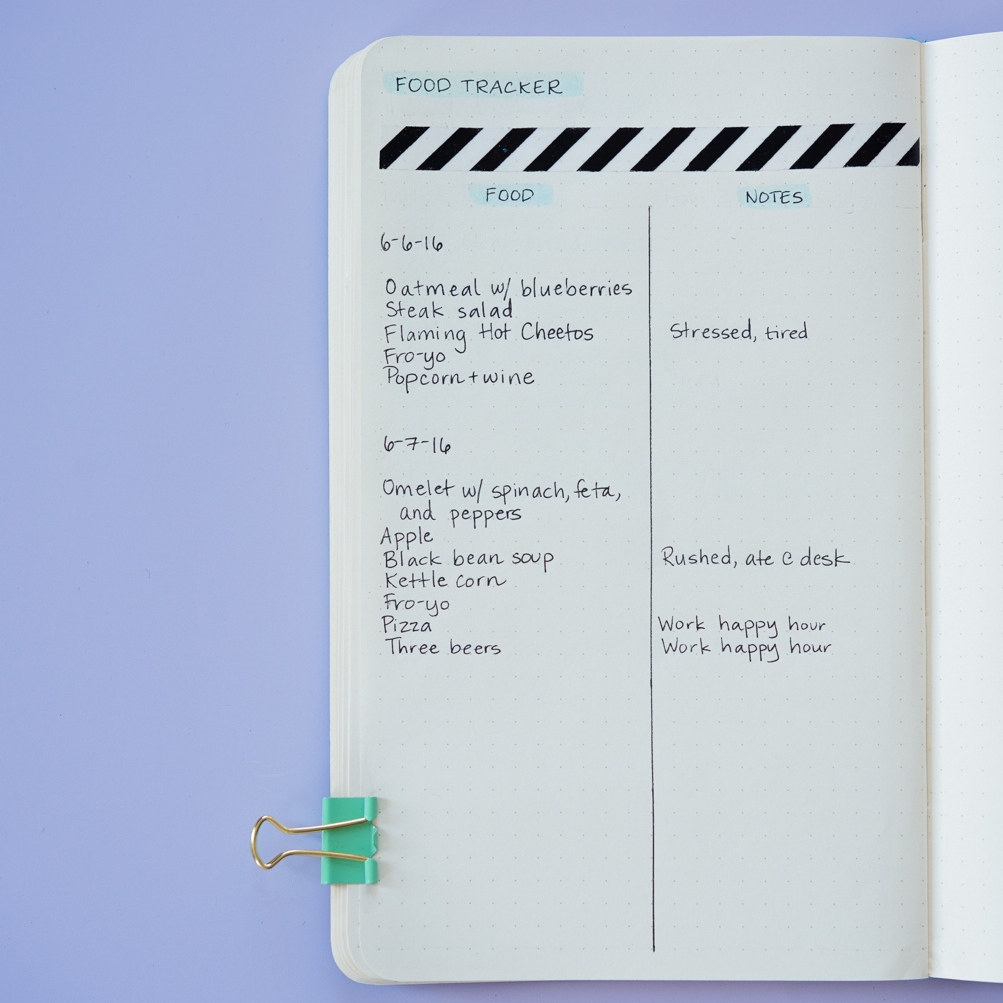 FOOD TRACKER
FOOD
NOTES
6-6-16
Oatmeal w/ blueberries
Steak salad
Flaming Hot Cheetos
Stressed, tired
Fro-yo
Popcorn + wine
6-7-16
Omelet w/ spinach, feta,
and peppers
Apple
Black bean soup
Rushed, ate @ desk
Kettle corn
Fro-yo
Pizza
Work happy hour
Three beers
Work happy hour